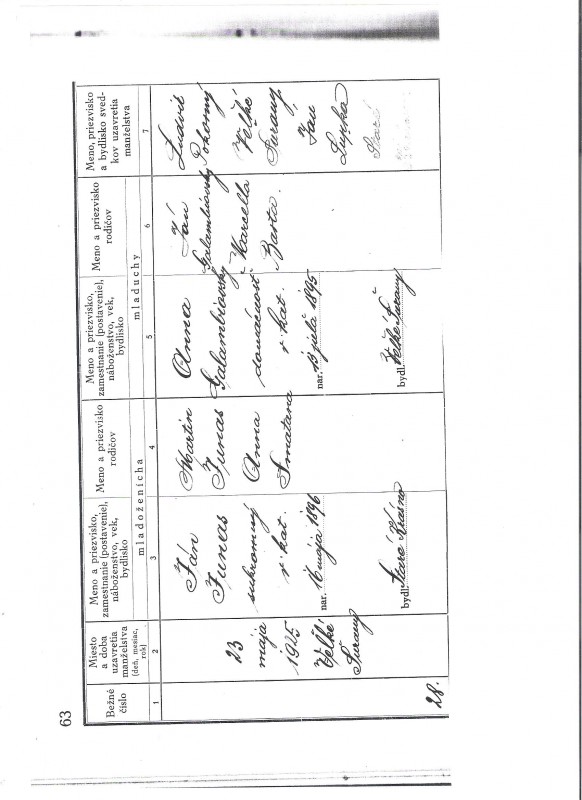 63
Bežné číslo
Miesto a doba uzavretia manželstva (deň, mesiac, rok)
Meno a priezvisko, zamestnanie (postavenie), náboženstvo, vek, bydlisko
Meno a priezvisko rodičov
mladoženícha
Meno a priezvisko, zamestnanie (postavenie), náboženstvo, vek, bydlisko
Meno a priezvisko rodičov
mladuchy
Meno, priezvisko a bydlisko svedkov uzavretia manželstva
1 2 3 4 5 6 7
28.
23
mája
1925
Veľké
Šurany
Ján
Junas
sukromný
r. kat.
nar. 16 mája 1896
bydl. Staré Krásno
Martin
Junas
Anna
Smatana
Anna
Galambišovský
domácnosť
r. kat.
nar. 13 júla 1895
bydl. Veľké Šurany
Ján
Galambišovský
Marcella
Barta
Ludvik
Pokorný
Veľké
Šurany
Ján
Lupka
Staré